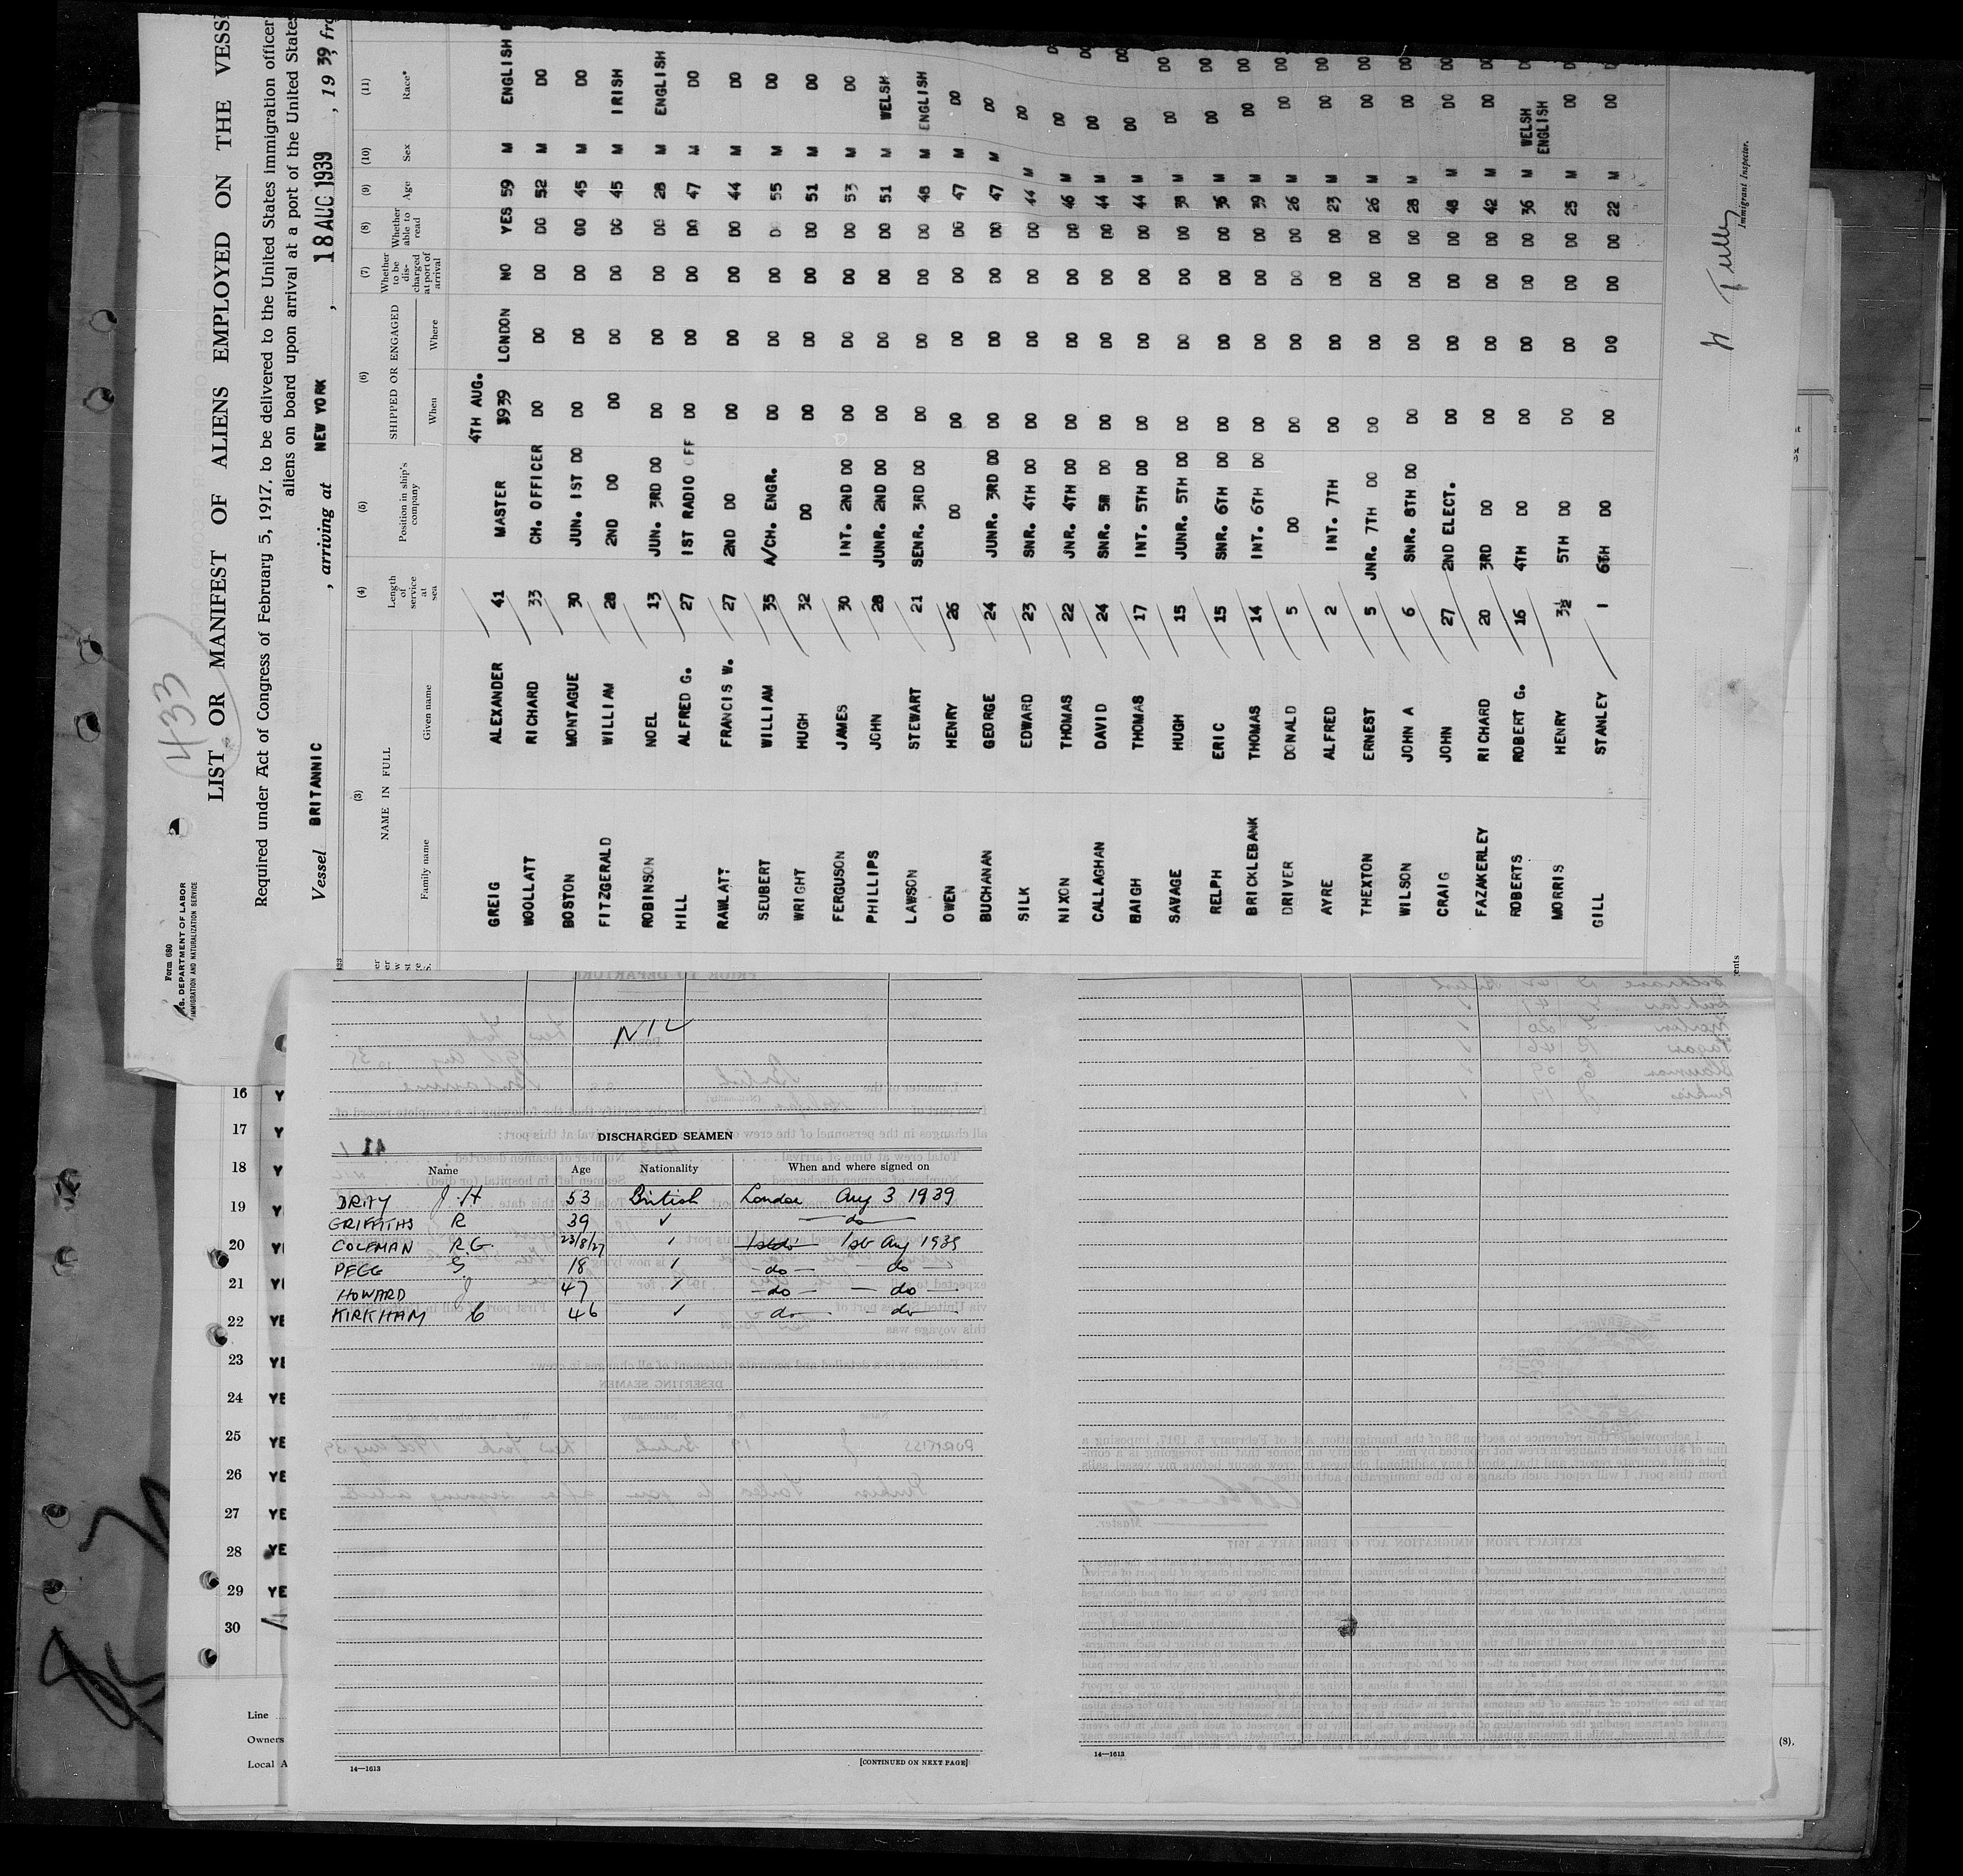 433
Form 680
U.S. DEPARTMENT OF LABOR
IMMIGRATION AND NATURALIZATION SERVICE
LIST OR MANIFEST OF ALIENS EMPLOYED ON THE VESS
Required under Act of Congress of February 5, 1917, to be delivered to the United States immigration officer
aliens on board upon arrival at a port of the United States
Vessel BRITANNIC , arriving at NEW YORK , 18 AUG 1939 , 19 39, fro
(3) (4) (5) (6) (7) (8) (9) (10) (11)
NAME IN FULL Length of service at sea Position in ship's company SHIPPED OR ENGAGED Whether to be discharged at port of arrival Whether able to read Age Sex Race*
Family name Given name When Where
4TH AUG.
GREIG ALEXANDER 41 MASTER 3939 LONDON NO YES 59 M ENGLISH
WOOLLATT RICHARD 33 CH. OFFICER DO DO DO DO 52 M DO
BOSTON MONTAGUE 30 JUN. 1ST DO DO DO DO DO 45 M DO
FITZGERALD WILLIAM 28 2ND DO DO DO DO DO 45 M IRISH
ROBINSON NOEL 13 JUN. 3RD DO DO DO DO DO 28 M ENGLISH
HILL ALFRED G. 27 1ST RADIO OFF DO DO DO DO 47 M DO
RAWLATT FRANCIS W. 27 2ND DO DO DO DO DO 44 M DO
SEUBERT WILLIAM 35 A/CH. ENGR. DO DO DO DO 55 M DO
WRIGHT HUGH 32 DO DO DO DO DO 51 M DO
FERGUSON JAMES 30 INT. 2ND DO DO DO DO DO 53 M DO
PHILLIPS JOHN 28 JUNR. 2ND DO DO DO DO DO 51 M WELSH
LAWSON STEWART 21 SENR. 3RD DO DO DO DO DO 48 M ENGLISH
OWEN HENRY 26 DO DO DO DO DO 47 M DO
BUCHANAN GEORGE 24 JUNR. 3RD DO DO DO DO DO 47 M DO
SILK EDWARD 23 SNR. 4TH DO DO DO DO DO 44 M DO
NIXON THOMAS 22 JNR. 4TH DO DO DO DO DO 46 M DO
CALLAGHAN DAVID 24 SNR. DO DO DO DO DO 44 M DO
HAIGH THOMAS 17 INT. 5TH DO DO DO DO DO 44 M DO
SAVAGE HUGH 15 JUNR. 5TH DO DO DO DO DO 38 M DO
RELPH ERIC 15 SNR. 6TH DO DO DO DO DO 36 M DO
BRICKLEBANK THOMAS 14 INT. 6TH DO DO DO DO DO 39 M DO
DRIVER DONALD 5 DO DO DO DO DO 26 M DO
AYRE ALFRED 2 INT. 7TH DO DO DO DO 23 M DO
THEXTON ERNEST 5 JNR. 7TH DO DO DO DO DO 26 M DO
WILSON JOHN A 6 SNR. 8TH DO DO DO DO DO 28 M DO
CRAIG JOHN 27 2ND ELECT. DO DO DO DO 48 M DO
FAZAKERLEY RICHARD 20 3RD DO DO DO DO DO 42 M DO
ROBERTS ROBERT G. 16 4TH DO DO DO DO DO 36 M WELSH
ENGLISH
MORRIS HENRY 3½ 5TH DO DO DO DO DO 25 M DO
GILL STANLEY 1 6TH DO DO DO DO DO 22 M DO
Immigrant Inspector.
NIL
DISCHARGED SEAMEN
Name Age Nationality When and where signed on
DRITY J. H 53 British London Aug 3 1939
GRIFFITHS R 39 ✓ do
COLEMAN R.G. 23/8/27 1st Aug 1939
PEGG G 18 do do
HOWARD J 47 do do
KIRKHAM C 46 ✓ do do
14—1613 [CONTINUED ON NEXT PAGE]
14—1613
16 Y
17 Y
18 Y
19 Y
20 YE
21 YE
22 YE
23 YE
24 YE
25 YE
26 YE
27 YE
28 YE
29 YE
30
Line
Owners
Local A
(8).